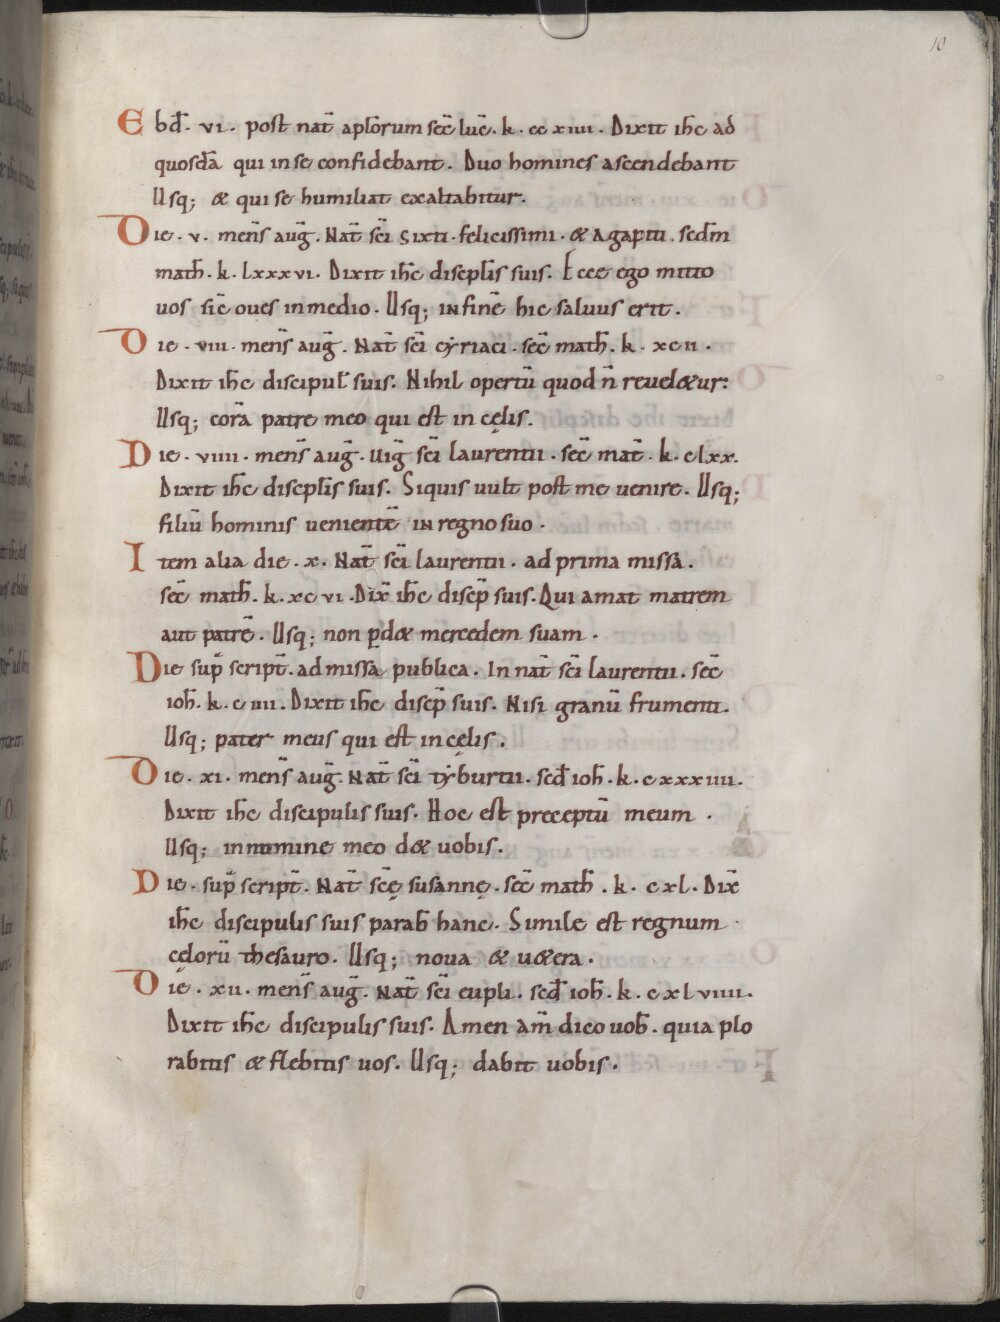 10
Ebđ. vi. post nat̄ aplōrum sec̄ luc̄. k. ccxiiii. Dixit ihc̄ ad
quosdā qui in se confidebant. Duo homines ascendebant
Usq; & qui se humiliat exaltabitur.
Die. v. mens̄ auḡ. Nat̄ sc̄i sixti. felicissimi. & Agapiti. secdm̄
math̄. k. lxxxvi. Dixit ihc̄ discplīs suis. Ecce ego mitto
vos sic̄ oves in medio. Usq; in finē hic salvus erit.
Die. viii. mens̄ auḡ. Nat̄ sc̄i cyriaci. sec̄ math̄. k. xcii.
Dixit ihc̄ discipul̄ suis. Nihil opertū quod n̄ revel&ur:
Usq; corā patre meo qui est in cęlis.
Die. viiii. mens̄ auḡ. Uiḡ sc̄i laurentii. sec̄ mat̄. k. clxx.
Dixit ihc̄ discplīs suis. Siquis uult post me uenire. Usq;
filiū hominis uenientē in regno suo.
Item alia die. x. Nat̄ sc̄i laurentii. ad prima missā.
sec̄ math̄. k. xcvi. Dix̄ ihc̄ discip̄ suis. Qui amat matrem
aut patrē. Usq; non pd& mercedem suam.
Die sup̄ script̄. ad missā publica. In nat̄ sc̄i laurentii. sec̄
ioh̄. k. ciiii. Dixit ihc̄ discip̄ suis. Nisi granū frumenti.
Usq; pater meus qui est in cęlis.
Die. xi. mens̄ auḡ. Nat̄ sc̄i tyburtii. secđ ioh̄. k. cxxxiiii.
Dixit ihc̄ discipulis suis. Hoc est preceptū meum.
Usq; in nomine meo d& uobis.
Die. sup̄ script̄. Nat̄ sc̄ę susannę. sec̄ math̄. k. cxl. Dix̄
ihc̄ discipulis suis parab̄ hanc. Simile est regnum
cęlorū thesauro. Usq; noua & u&era.
Die. xii. mens̄ auḡ. Nat̄ sc̄i eupli. secđ ioh̄. k. cxlviiii.
Dixit ihc̄ discipulis suis. Amen am̄ dico uob̄. quia plo
rabitis & flebitis uos. Usq; dabit uobis.